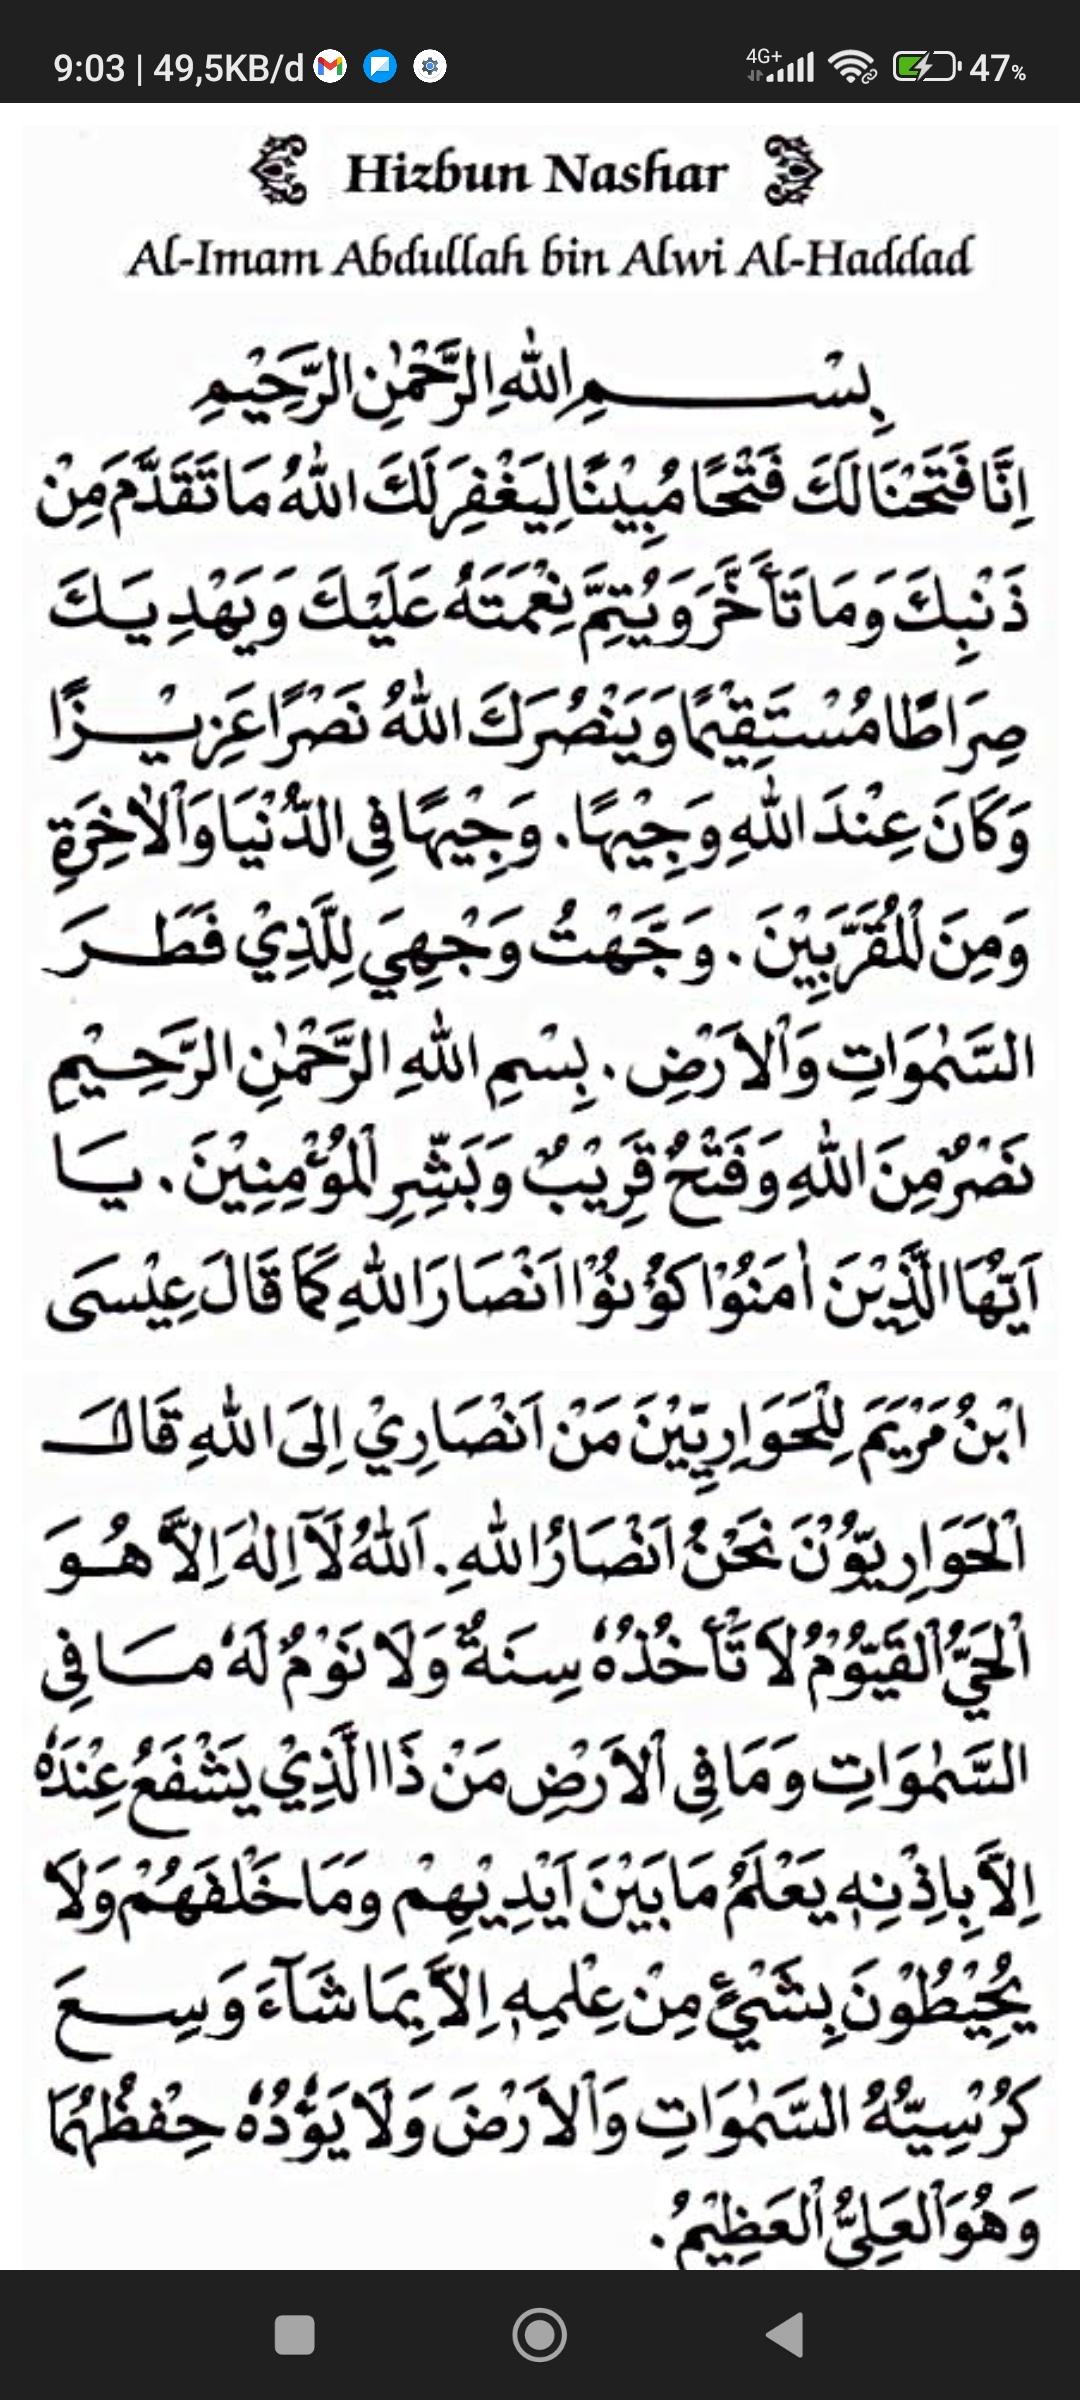 9:03 | 49,5KB/d 4G+ 47%
Hizbun Nashar
Al-Imam Abdullah bin Alwi Al-Haddad
بِسْــــــــمِ اللهِ الرَّحْمٰنِ الرَّحِيْمِ
اِنَّا فَتَحْنَا لَكَ فَتْحًا مُبِيْنًا لِيَغْفِرَ لَكَ اللهُ مَا تَقَدَّمَ مِنْ
ذَنْبِكَ وَمَا تَأَخَّرَ وَيُتِمَّ نِعْمَتَهُ عَلَيْكَ وَيَهْدِيَكَ
صِرَاطًا مُسْتَقِيْمًا وَيَنْصُرَكَ اللهُ نَصْرًا عَزِيْزًا
وَكَانَ عِنْدَ اللهِ وَجِيْهًا. وَجِيْهًا فِى الدُّنْيَا وَاْلاٰخِرَةِ
وَمِنَ الْمُقَرَّبِيْنَ. وَجَّهْتُ وَجْهِيَ لِلَّذِيْ فَطَرَ
السَّمٰوَاتِ وَاْلاَرْضِ. بِسْمِ اللهِ الرَّحْمٰنِ الرَّحِيْمِ
نَصْرٌ مِنَ اللهِ وَفَتْحٌ قَرِيْبٌ وَبَشِّرِ الْمُؤْمِنِيْنَ. يَا
اَيُّهَا الَّذِيْنَ اٰمَنُوْا كُوْنُوْا اَنْصَارَ اللهِ كَمَا قَالَ عِيْسَى
ابْنُ مَرْيَمَ لِلْحَوَارِيِّيْنَ مَنْ اَنْصَارِيْ اِلَى اللهِ قَالَ
اْلحَوَارِيُّوْنَ نَحْنُ اَنْصَارُ اللهِ. اَللهُ لَآ اِلٰهَ اِلاَّ هُوَ
اْلحَيُّ اْلقَيُّوْمُ لاَ تَأْخُذُهُ سِنَةٌ وَلَا نَوْمٌ لَهُ مَا فِى
السَّمٰوَاتِ وَمَا فِى اْلاَرْضِ مَنْ ذَا الَّذِيْ يَشْفَعُ عِنْدَهُ
اِلاَّ بِاِذْنِهِ يَعْلَمُ مَا بَيْنَ اَيْدِيْهِمْ وَمَا خَلْفَهُمْ وَلَا
يُحِيْطُوْنَ بِشَيْئٍ مِنْ عِلْمِهِ اِلاَّ بِمَا شَآءَ وَسِعَ
كُرْسِيُّهُ السَّمٰوَاتِ وَاْلاَرْضَ وَلَا يَؤُدُهُ حِفْظُهُمَا
وَهُوَ اْلعَلِيُّ اْلعَظِيْمُ.